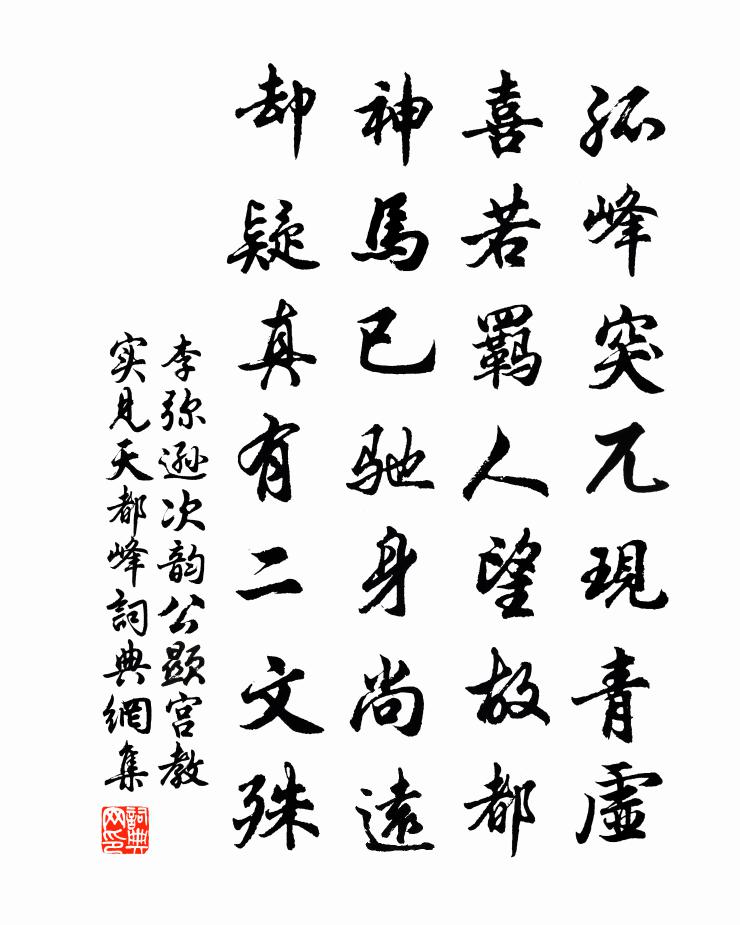 孤峰突兀現青虛
喜若羈人望故都
神馬已馳身尚遠
却疑真有二文殊
李弥遜次韵公顯宫教
实見天都峰詞典網集
詞典网印